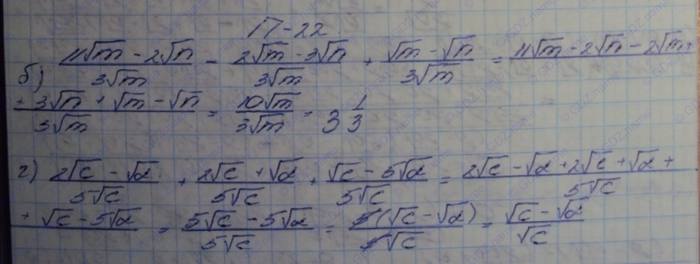 17-22
б) (11√m - 2√n)/(3√m) - (2√m - 3√n)/(3√m) + (√m - √n)/(3√m) = (11√m - 2√n - 2√m +
+ 3√n + √m - √n)/(3√m) = (10√m)/(3√m) = 3 1/3
г) (2√c - √d)/(5√c) + (2√c + √d)/(5√c) + (√c - 5√d)/(5√c) = (2√c - √d + 2√c + √d +)/(5√c)
(+ √c - 5√d) = (5√c - 5√d)/(5√c) = (5(√c - √d))/(5√c) = (√c - √d)/(√c)